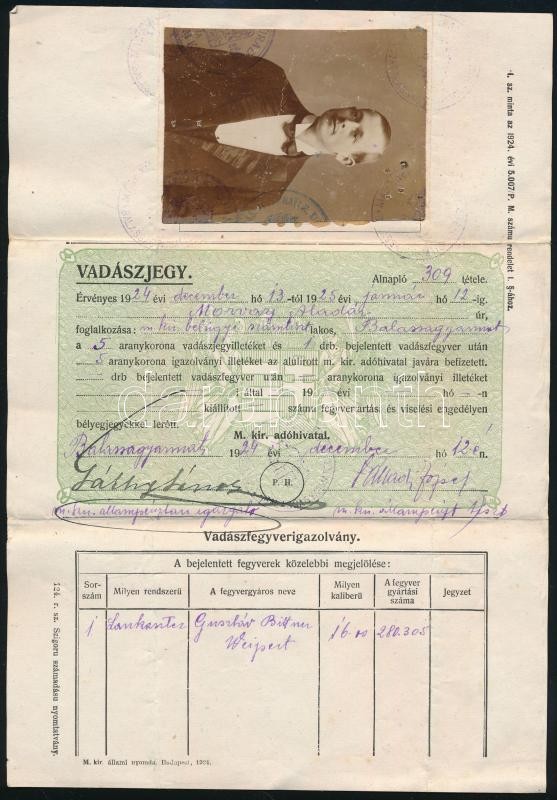 I. sz. minta az 1924. évi 5.067 P. M. számú rendelet 1. §-ához.
VADÁSZJEGY.
Alnapló 309 tétele.
Érvényes 1924 évi december hó 13-tól 1925 évi január hó 12-ig.
Morvay Aladár úr,
foglalkozása: m. kir. belügyi számtiszt lakos, Balassagyarmat
a 5 aranykorona vadászjegyilletéket és 1 drb. bejelentett vadászfegyver után
5 aranykorona igazolványi illetéket az alulírott m. kir. adóhivatal javára befizetett.
drb bejelentett vadászfegyver után aranykorona igazolványi illetéket
által 19 évi hó -n
kiállított számú fegyvertartási és viselési engedélyen
bélyegjegyekkel lerótt.
M. kir. adóhivatal.
Balassagyarmat 1924 évi december hó 12-én.
P. H.
József
m. kir. állampénztári igazgató
m. kir. állampénzt.
Vadászfegyverigazolvány.
A bejelentett fegyverek közelebbi megjelölése:
Sor-szám
Milyen rendszerű
A fegyvergyáros neve
Milyen kaliberű
A fegyver gyártási száma
Jegyzet
1 Lankaster Gusztáv Bittner 16.00 280.305
Weipert
124. r. sz. Szigorú számadású nyomtatvány.
M. kir. állami nyomda, Budapest, 1924.
darabanth